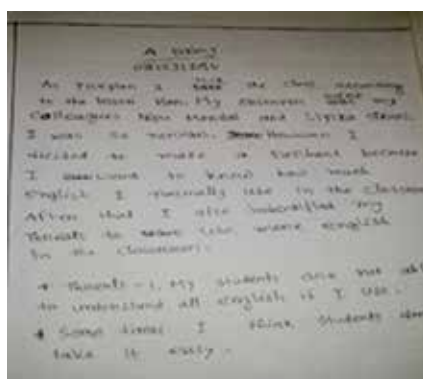 A
As I the class according
to the lesson Plan. My classroom were my
Colleagues and Lipika
I was so nervous. However I
decided to make a because
I to know how much
English I normally use in the classroom
After that I also indentified my
threats to use more english
In the classroom.
* Threats - 1. My students are not able
to understand all english if I use.
* Some times I think students
take it easily.